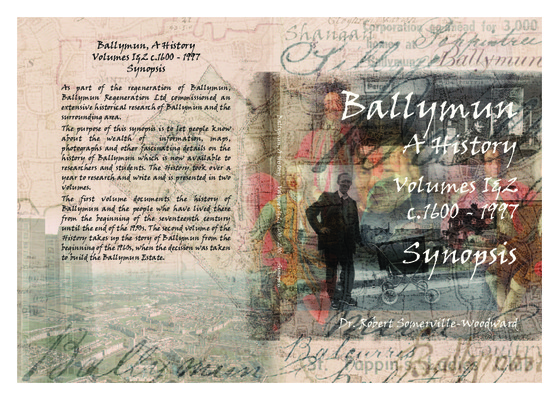 Ballymun, A History
Volumes I&2 c.1600 - 1997
Synopsis
As part of the regeneration of Ballymun,
Ballymun Regeneration Ltd commissioned an
extensive historical research of Ballymun and the
surrounding area.
The purpose of this synopsis is to let people know
about the wealth of information, maps,
photographs and other fascinating details on the
history of Ballymun which is now available to
researchers and students. The History took over a
year to research and write and is presented in two
volumes.
The first volume documents the history of
Ballymun and the people who have lived there
from the beginning of the seventeenth century
until the end of the 1950s. The second volume of the
History takes up the story of Ballymun from the
beginning of the 1960s, when the decision was taken
to build the Ballymun Estate.
Ballymun
Shangan
Corporation go ahead for 3,000
homes at
Poppintree
Ballymun
Ballymun
A History
Volumes I&2
c.1600 - 1997
Synopsis
Dr. Robert Somerville-Woodward
Balcurris
St. Pappin's Ladies Club